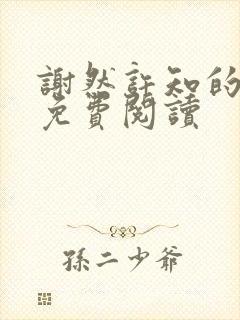 謝然許知的
免費閱讀
孫二少爺